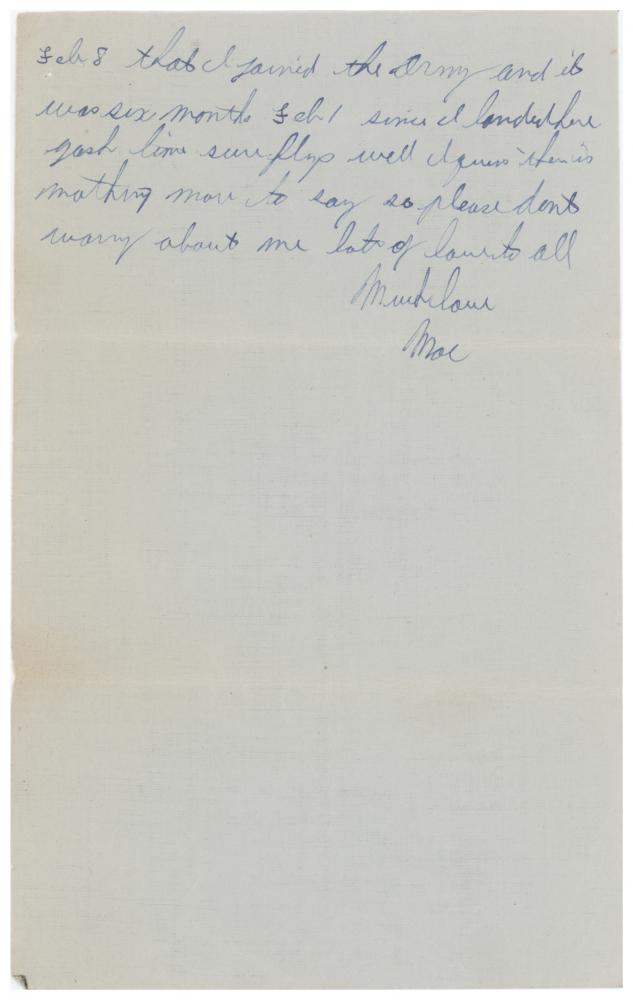 Feb 8 that I joined the Army and it
was six months Feb 1 since I landed here
gosh time sure flys well I guess there is
nothing more to say so please dont
worry about me lots of love to all
Much love
Moe